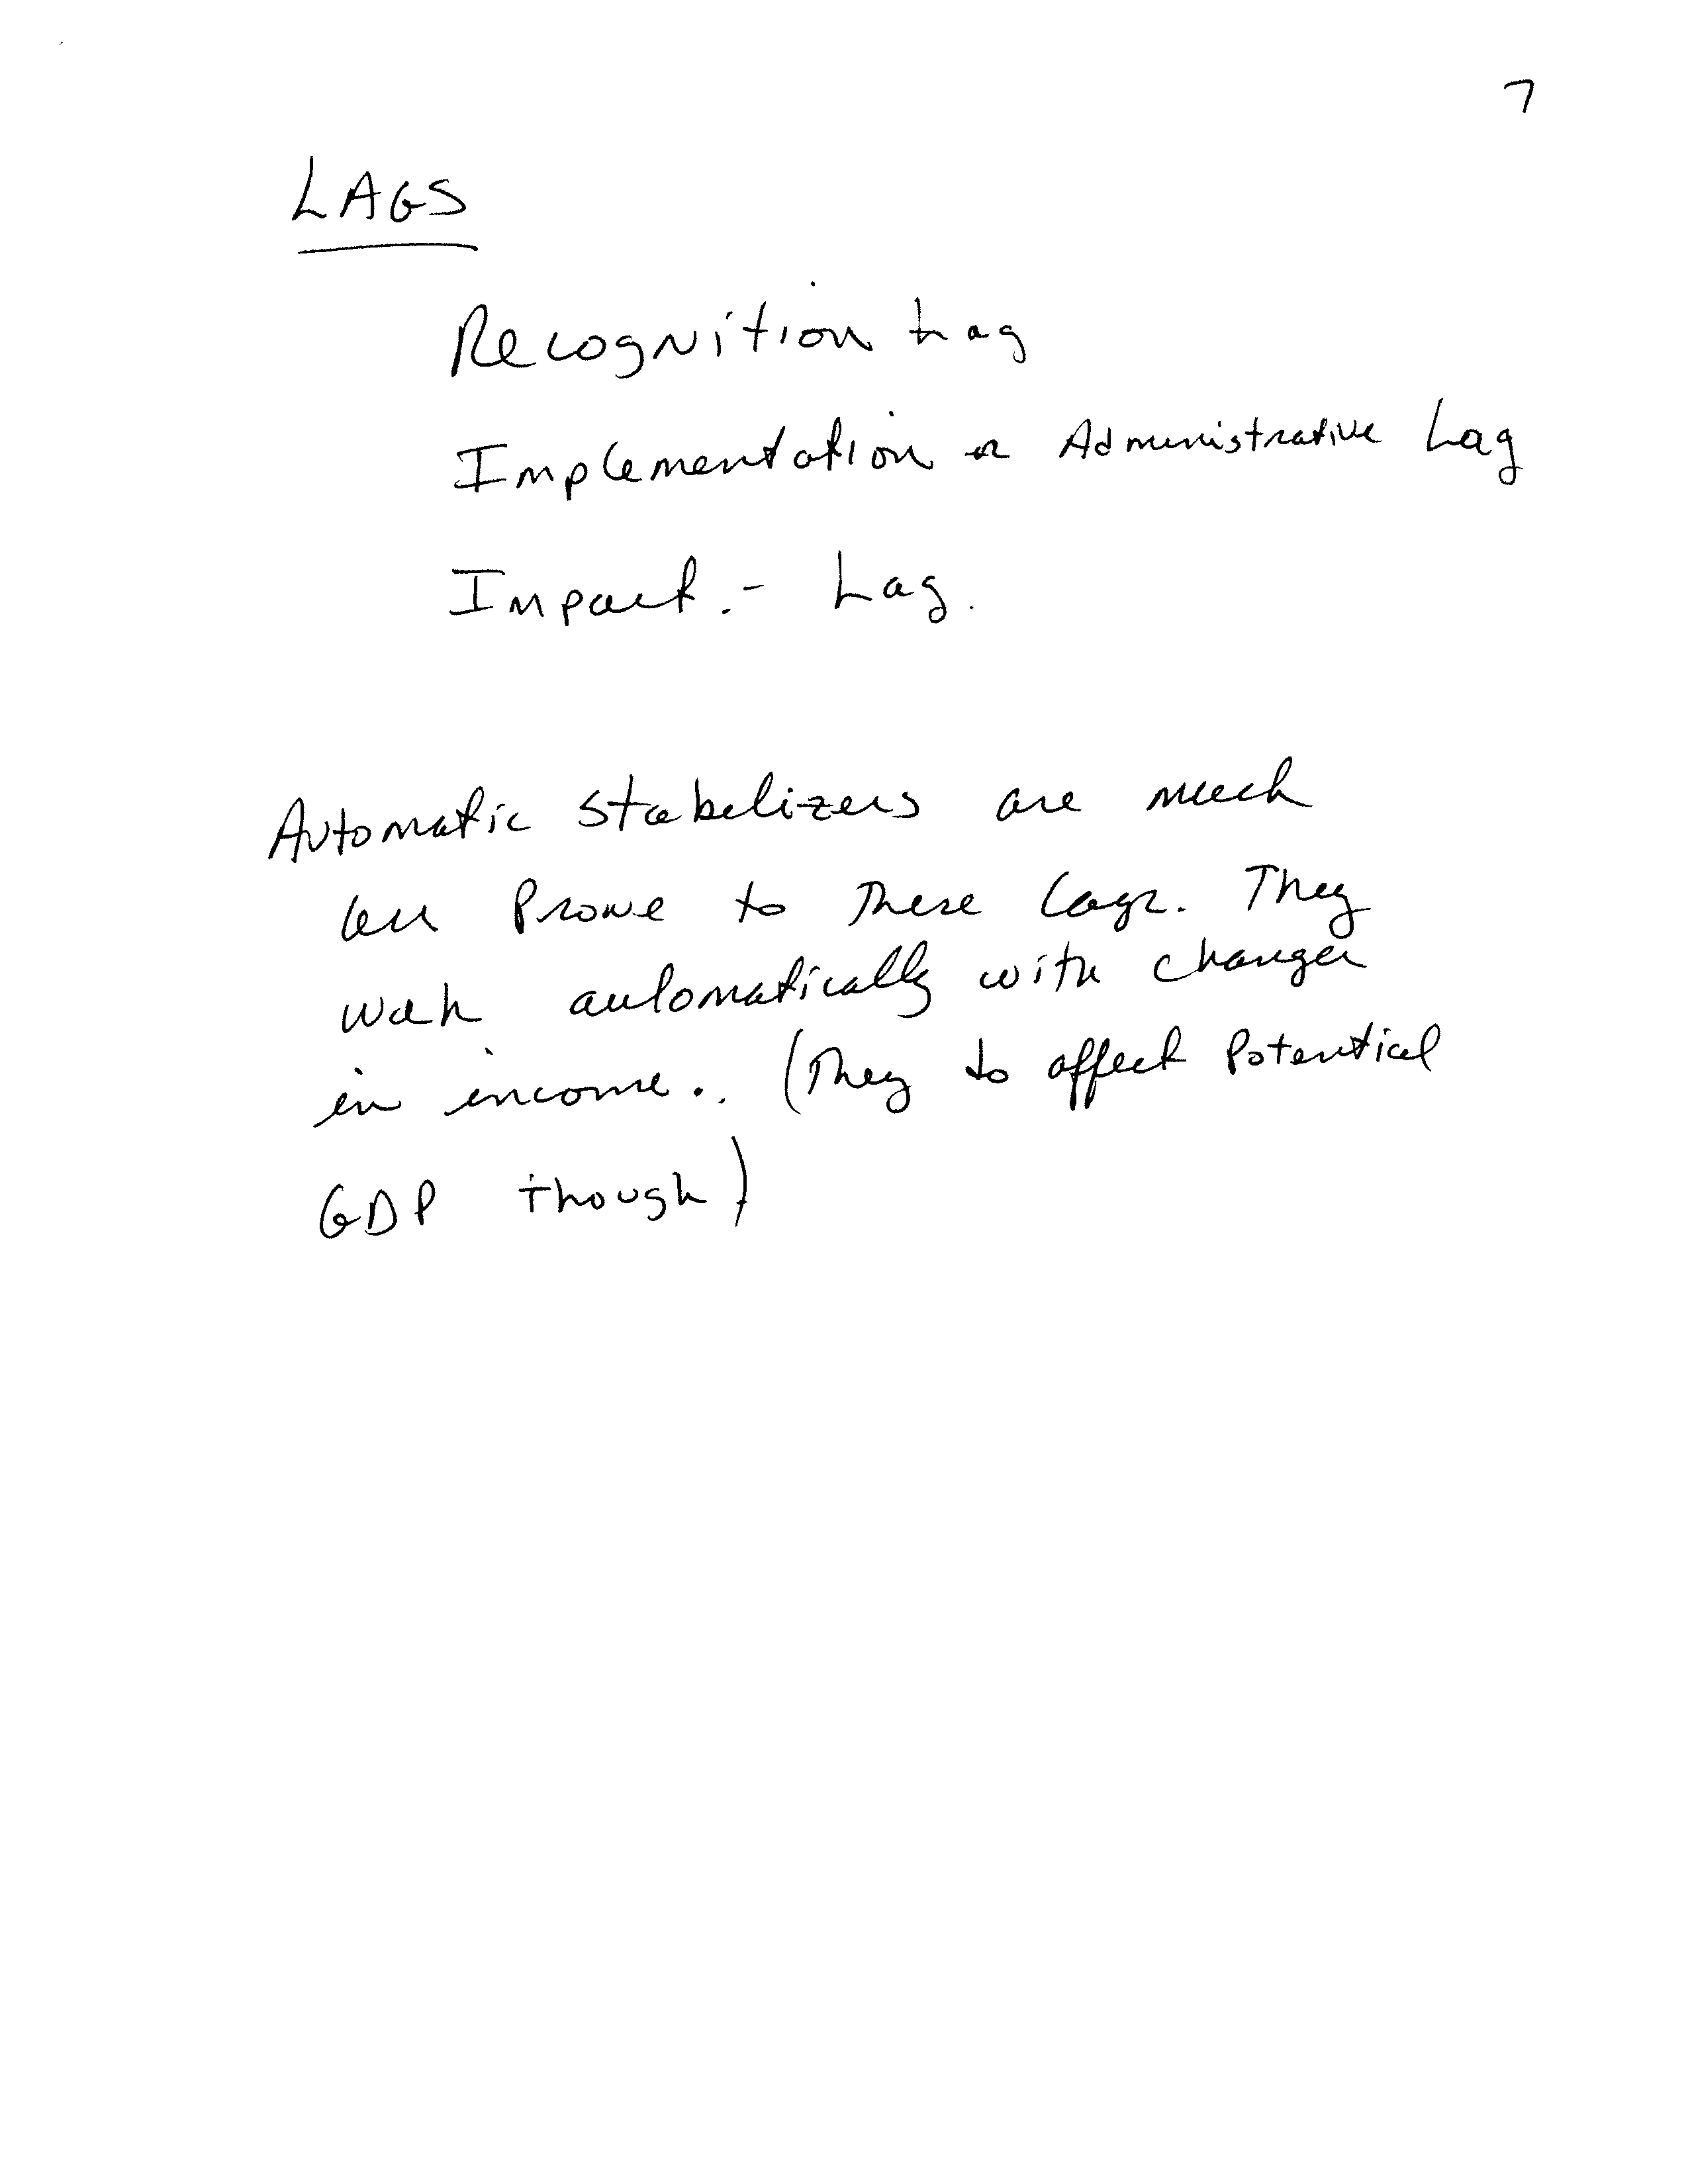 7
LAGS
Recognition Lag
Implementation or Administrative Lag
Impact.- Lag.
Automatic stabelizers are much
less Prone to These lags. They
work automatically with changes
in income.. (They to affect Potential
GDP though)